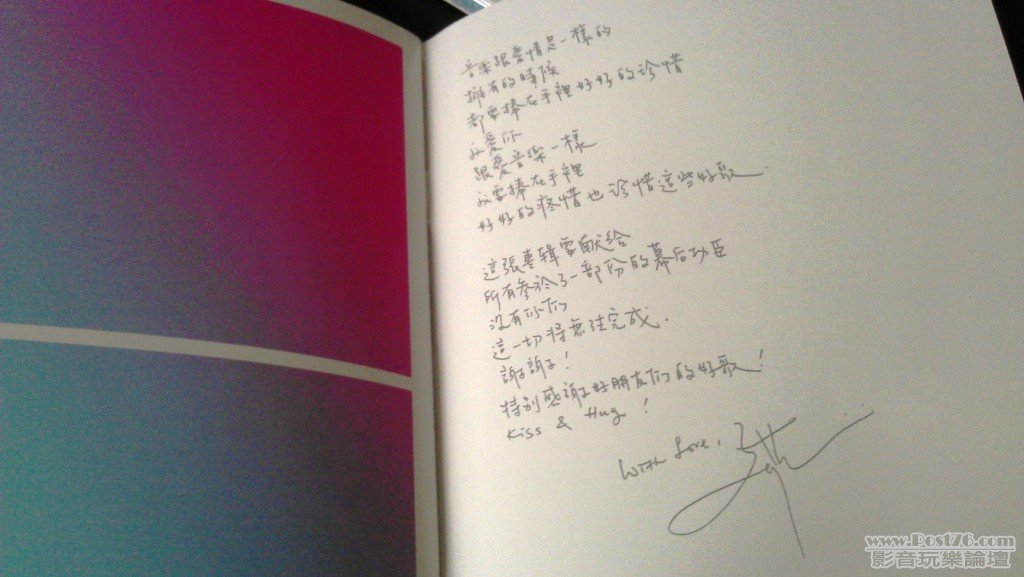 音樂跟愛情是一樣的
擁有的時候
都要捧在手裡好好的珍惜
我愛你
跟愛音樂一樣
我要捧在手裡
好好的疼惜也珍惜這些好歌
這張專輯要献給
所有參於了一部份的幕后功臣
沒有你们
這一切將無法完成.
謝謝!
特別感謝好朋友们的好歌!
Kiss & Hug!
With Love,
www.Post76.com
影音玩樂論壇